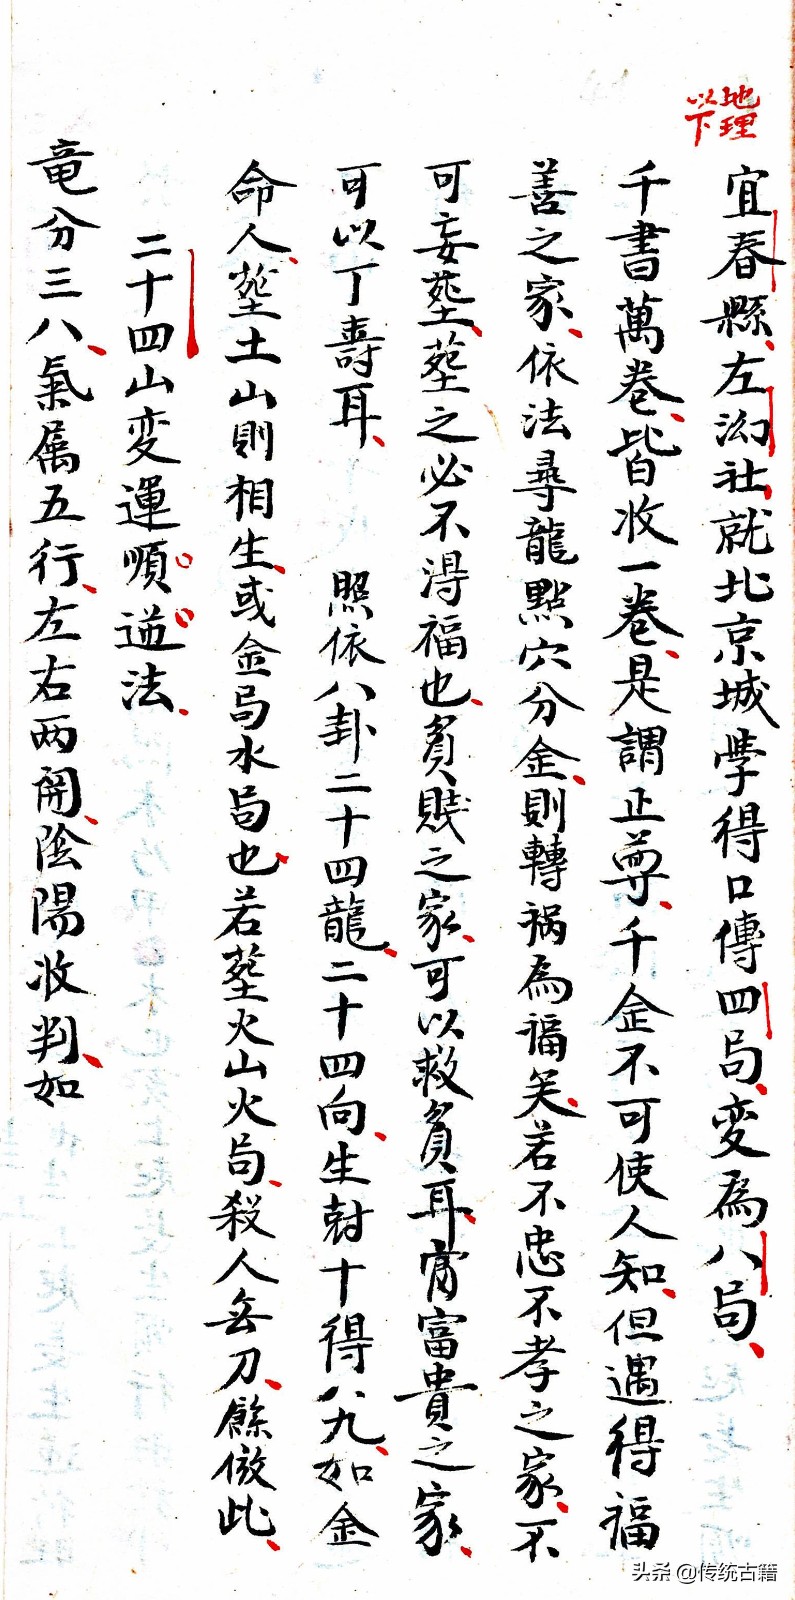 地理
以下
宜春縣左㘭社就北京城學得口傳四局变爲八局
千書萬卷皆收一卷是謂正尊千金不可使人知但遇得福
善之家依法尋龍點穴分金則轉祸為福矣若不忠不孝之家不
可妄塟塟之必不得福也貧賤之家可以救貧耳富貴之家
可以丁壽耳 照依八卦二十四龍二十四向生尅十得八九如金
命人塟土山則相生或金局水局也若塟火山火局殺人無刀餘倣此
二十四山变運順逆法
竜分三八氣属五行左右两開陰陽收判如
头条 @传统古籍